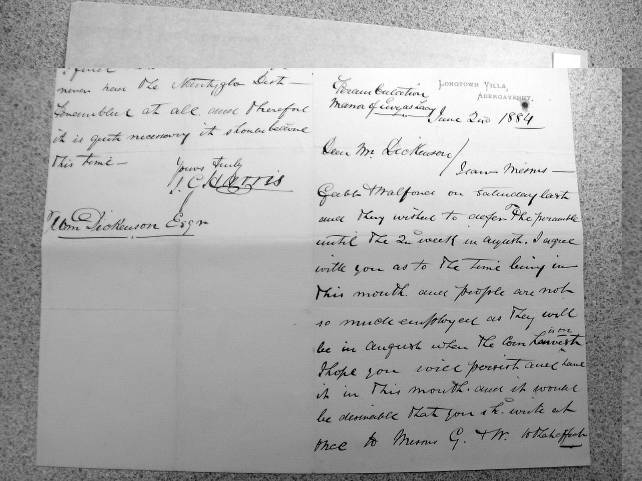 LONGTOWN VILLA,
ABERGAVENNY.
Perambulation
Manor of Ewyas Lacy
June 2nd 1884
Dear Mr Dickenson/
I saw Messrs
Gabb & Walford on Saturday last
and they wished to defer The peramble
until the 2n week in august. I agree
with you as to the time being in
this month and people are not
so much employed as they will
be in august when the Corn Harvest is on
I hope you will persist and have
it in this month. and it would
be desirable that you shd. write at
once to Messrs G. & W. to that effect
never near the Dist-
Remembled at all and therefore
it is quite necessary it should be done
this time-
Yours truly
J. C. Harris
Wm Dickenson Esqr